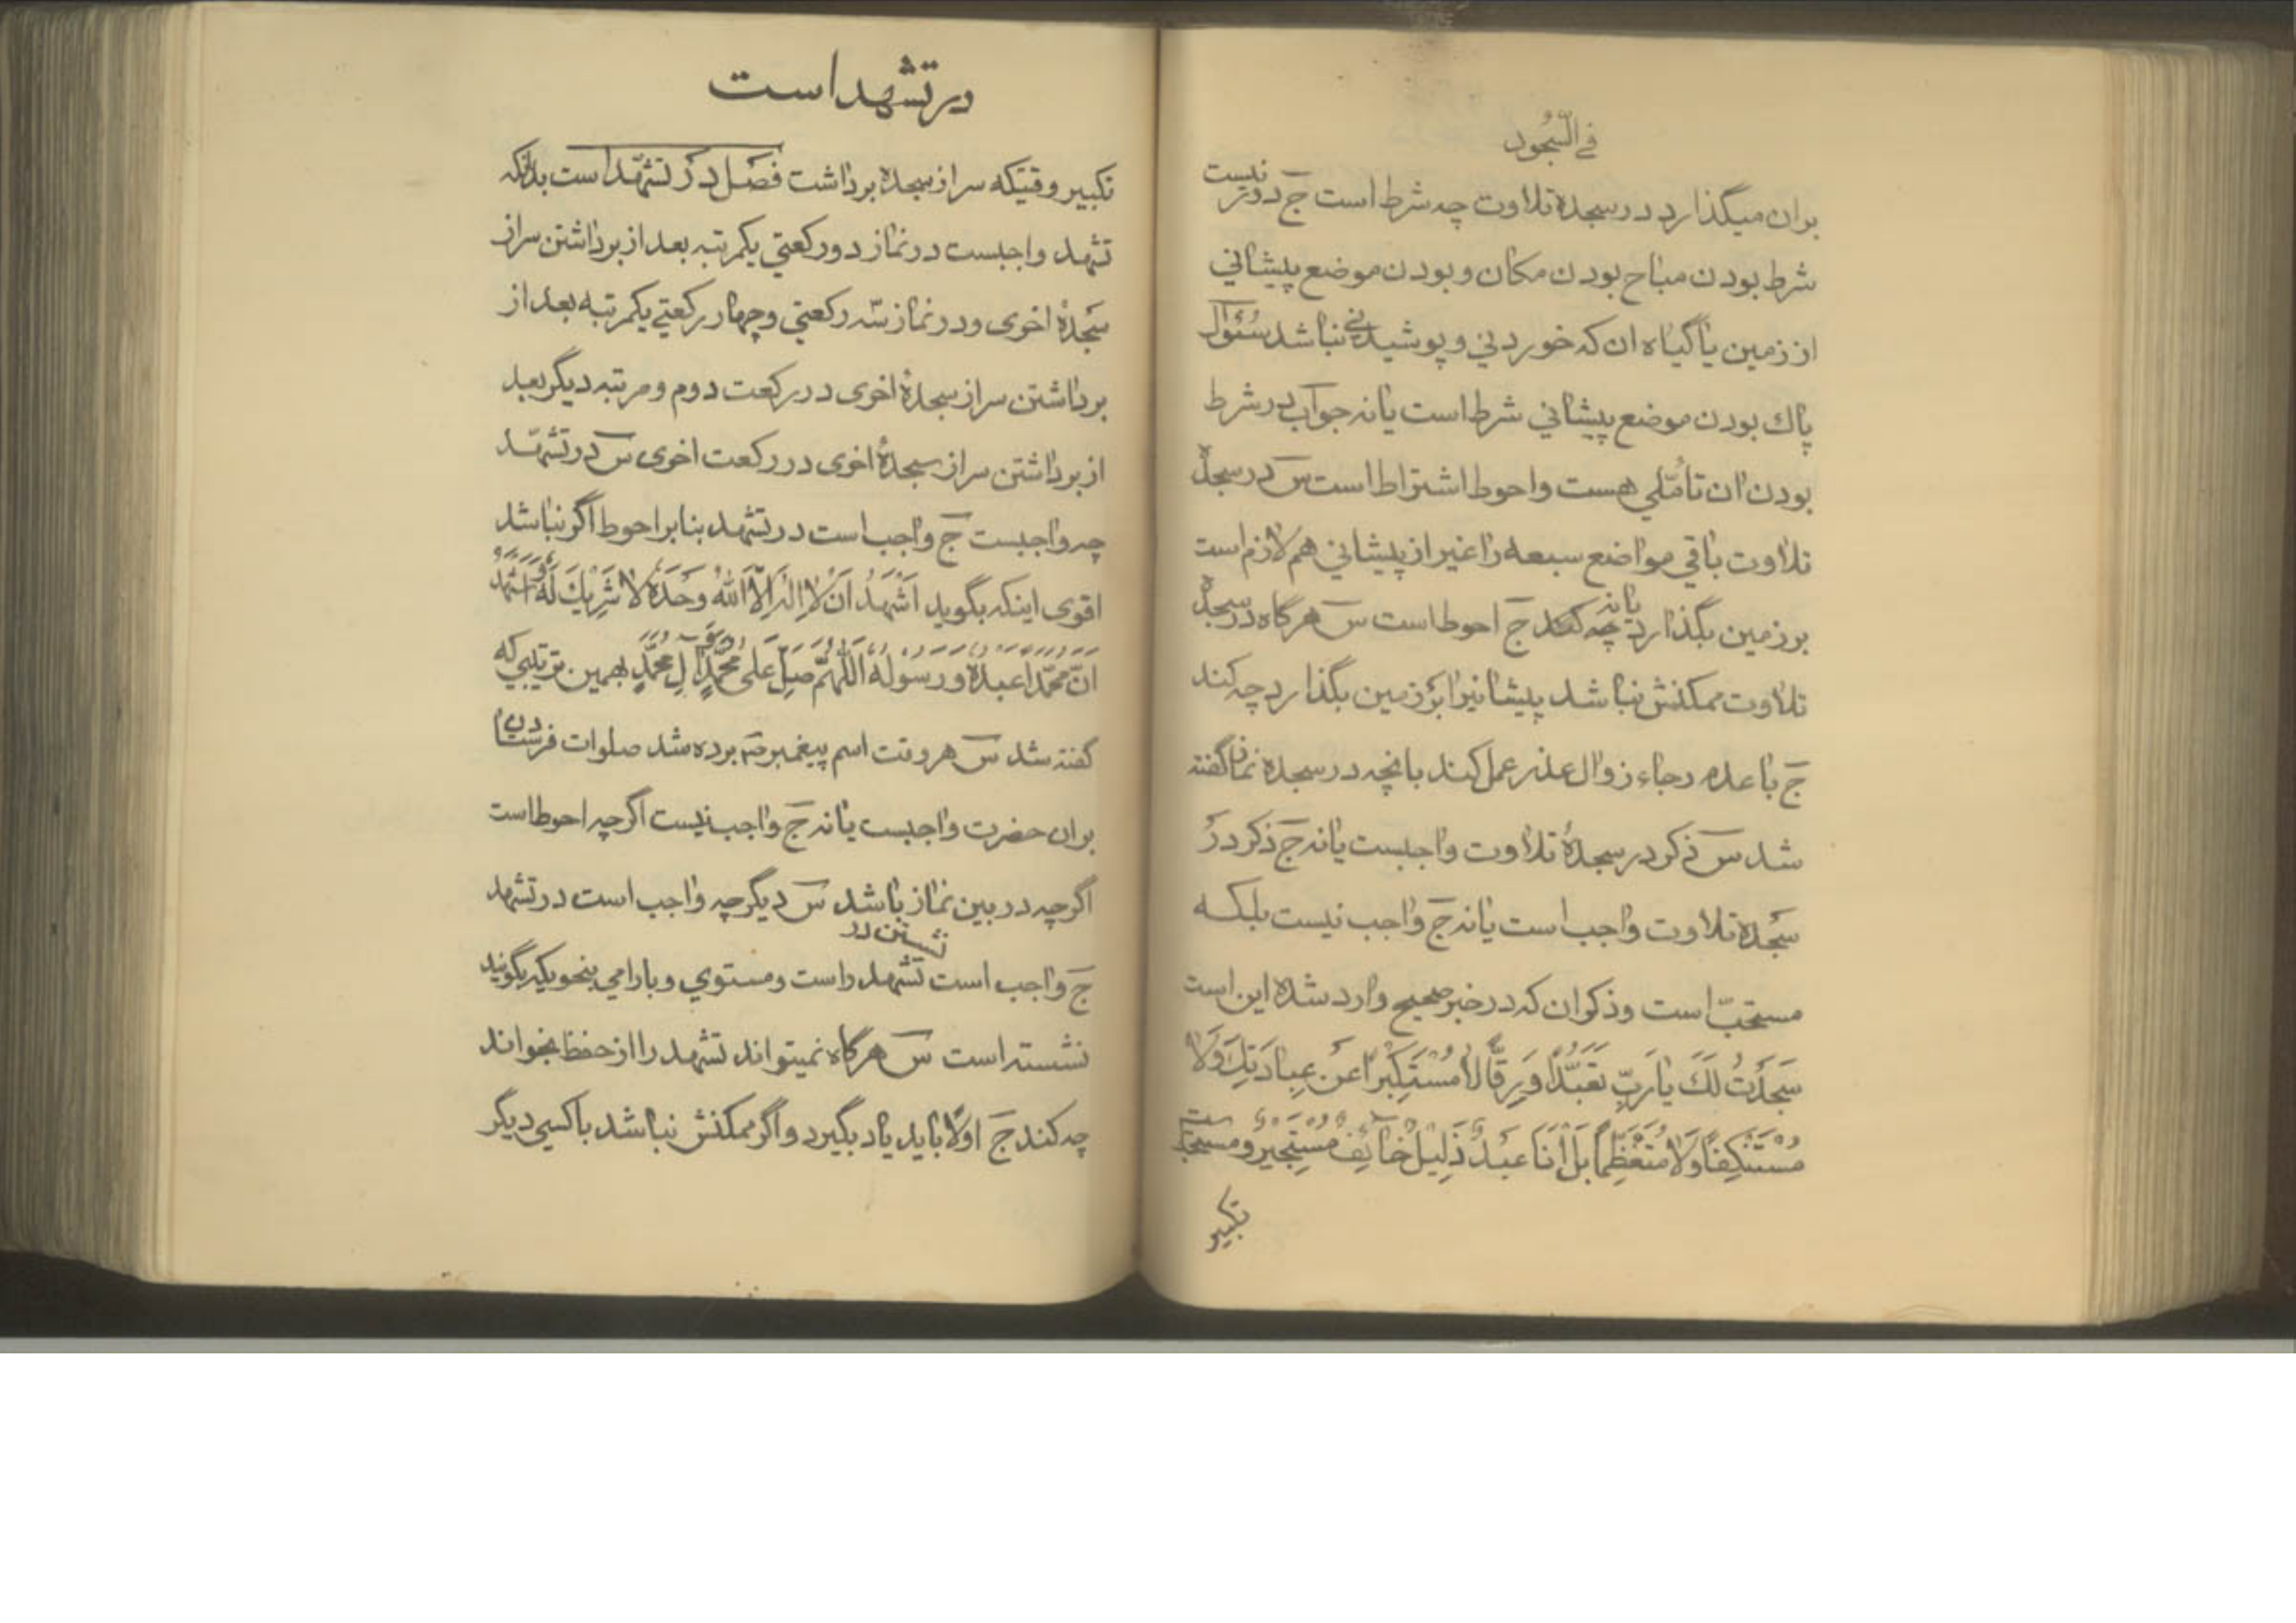 في السّجود
بران میگذارد در سجدهٔ تلاوت چه شرط است ج در تر نیست
شرط بودن مباح بودن مکان و بودن موضع پیشاني
از زمین یا گیاه ان که خوردني و پوشیدني نباشد سئوال
پاك بودن موضع پیشاني شرط است یا نه جواب در شرط
بودن ان تأمّلي هست و احوط اشتراط است س در سجدهٔ
تلاوت باقي مواضع سبعه را غیر از پیشاني هم لازم است
بر زمین بگذارد یا نه چه کند ج احوط است س هرگاه در سجدهٔ
تلاوت ممکنش نباشد پیشانیرا بر زمین بگذارد چه کند
ج با عدم رجاء زوال عذر عمل کند بانچه در سجده نماز گفته
شد س ذکر در سجدهٔ تلاوت واجبست یا نه ج ذکر در
سجدهٔ تلاوت واجب است یا نه ج واجب نیست بلکه
مستحبّ است و ذکر ان که در خبر صحیح وارد شده این است
سَجَدْتُ لَكَ یا رَبِّ تَعَبُّدًا وَ رِقًّا لا مُسْتَكْبِرًا عَنْ عِبادَتِكَ وَلا
مُسْتَنْكِفًا وَلا مُتَعَظِّمًا بَلْ اَنَا عَبْدٌ ذَلِیلٌ خائِفٌ مُسْتَجِیرٌ و مستحبّ است
تکبیر
در تشهد است
تکبیر وقتیکه سر از سجده برداشت فصل در تشهّد است بدانکه
تشهد واجبست در نماز دو رکعتي یکمرتبه بعد از برداشتن سر از
سجدهٔ اخری و در نماز سه رکعتي و چهار رکعتي یکمرتبه بعد از
برداشتن سر از سجدهٔ اخری در رکعت دوم و مرتبه دیگر بعد
از برداشتن سر از سجدهٔ اخری در رکعت اخری س در تشهّد
چه واجبست ج واجب است در تشهد بنابر احوط اگر نباشد
اقوی اینکه بگوید اَشْهَدُ اَنْ لا اِلهَ اِلَّا اللهُ وَحْدَهُ لا شَرِیكَ لَهُ وَ اَشْهَدُ
اَنَّ مُحَمَّدًا عَبْدُهُ وَ رَسُولُهُ اَللّهُمَّ صَلِّ عَلی مُحَمَّدٍ وَ آلِ مُحَمَّدٍ بهمین ترتیبي که
گفته شد س هر وقت اسم پیغمبر ص برده شد صلوات فرستادن
بران حضرت واجبست یا نه ج واجب نیست اگرچه احوط است
اگرچه در بین نماز باشد س دیگر چه واجب است در تشهد
ج واجب است نشستن در تشهد راست و مستوي و بارامي بنحویکه بگویند
نشسته است س هرگاه نمیتواند تشهد را از حفظ بخواند
چه کند ج اولًا باید یاد بگیرد و اگر ممکنش نباشد با کسي دیگر